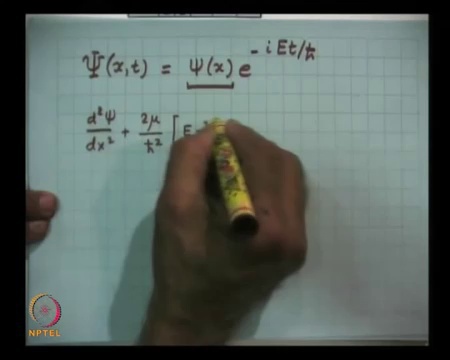 Ψ(x,t) = ψ(x) e^{-iEt/ħ}
d²ψ/dx² + 2μ/ħ² [E -
NPTEL